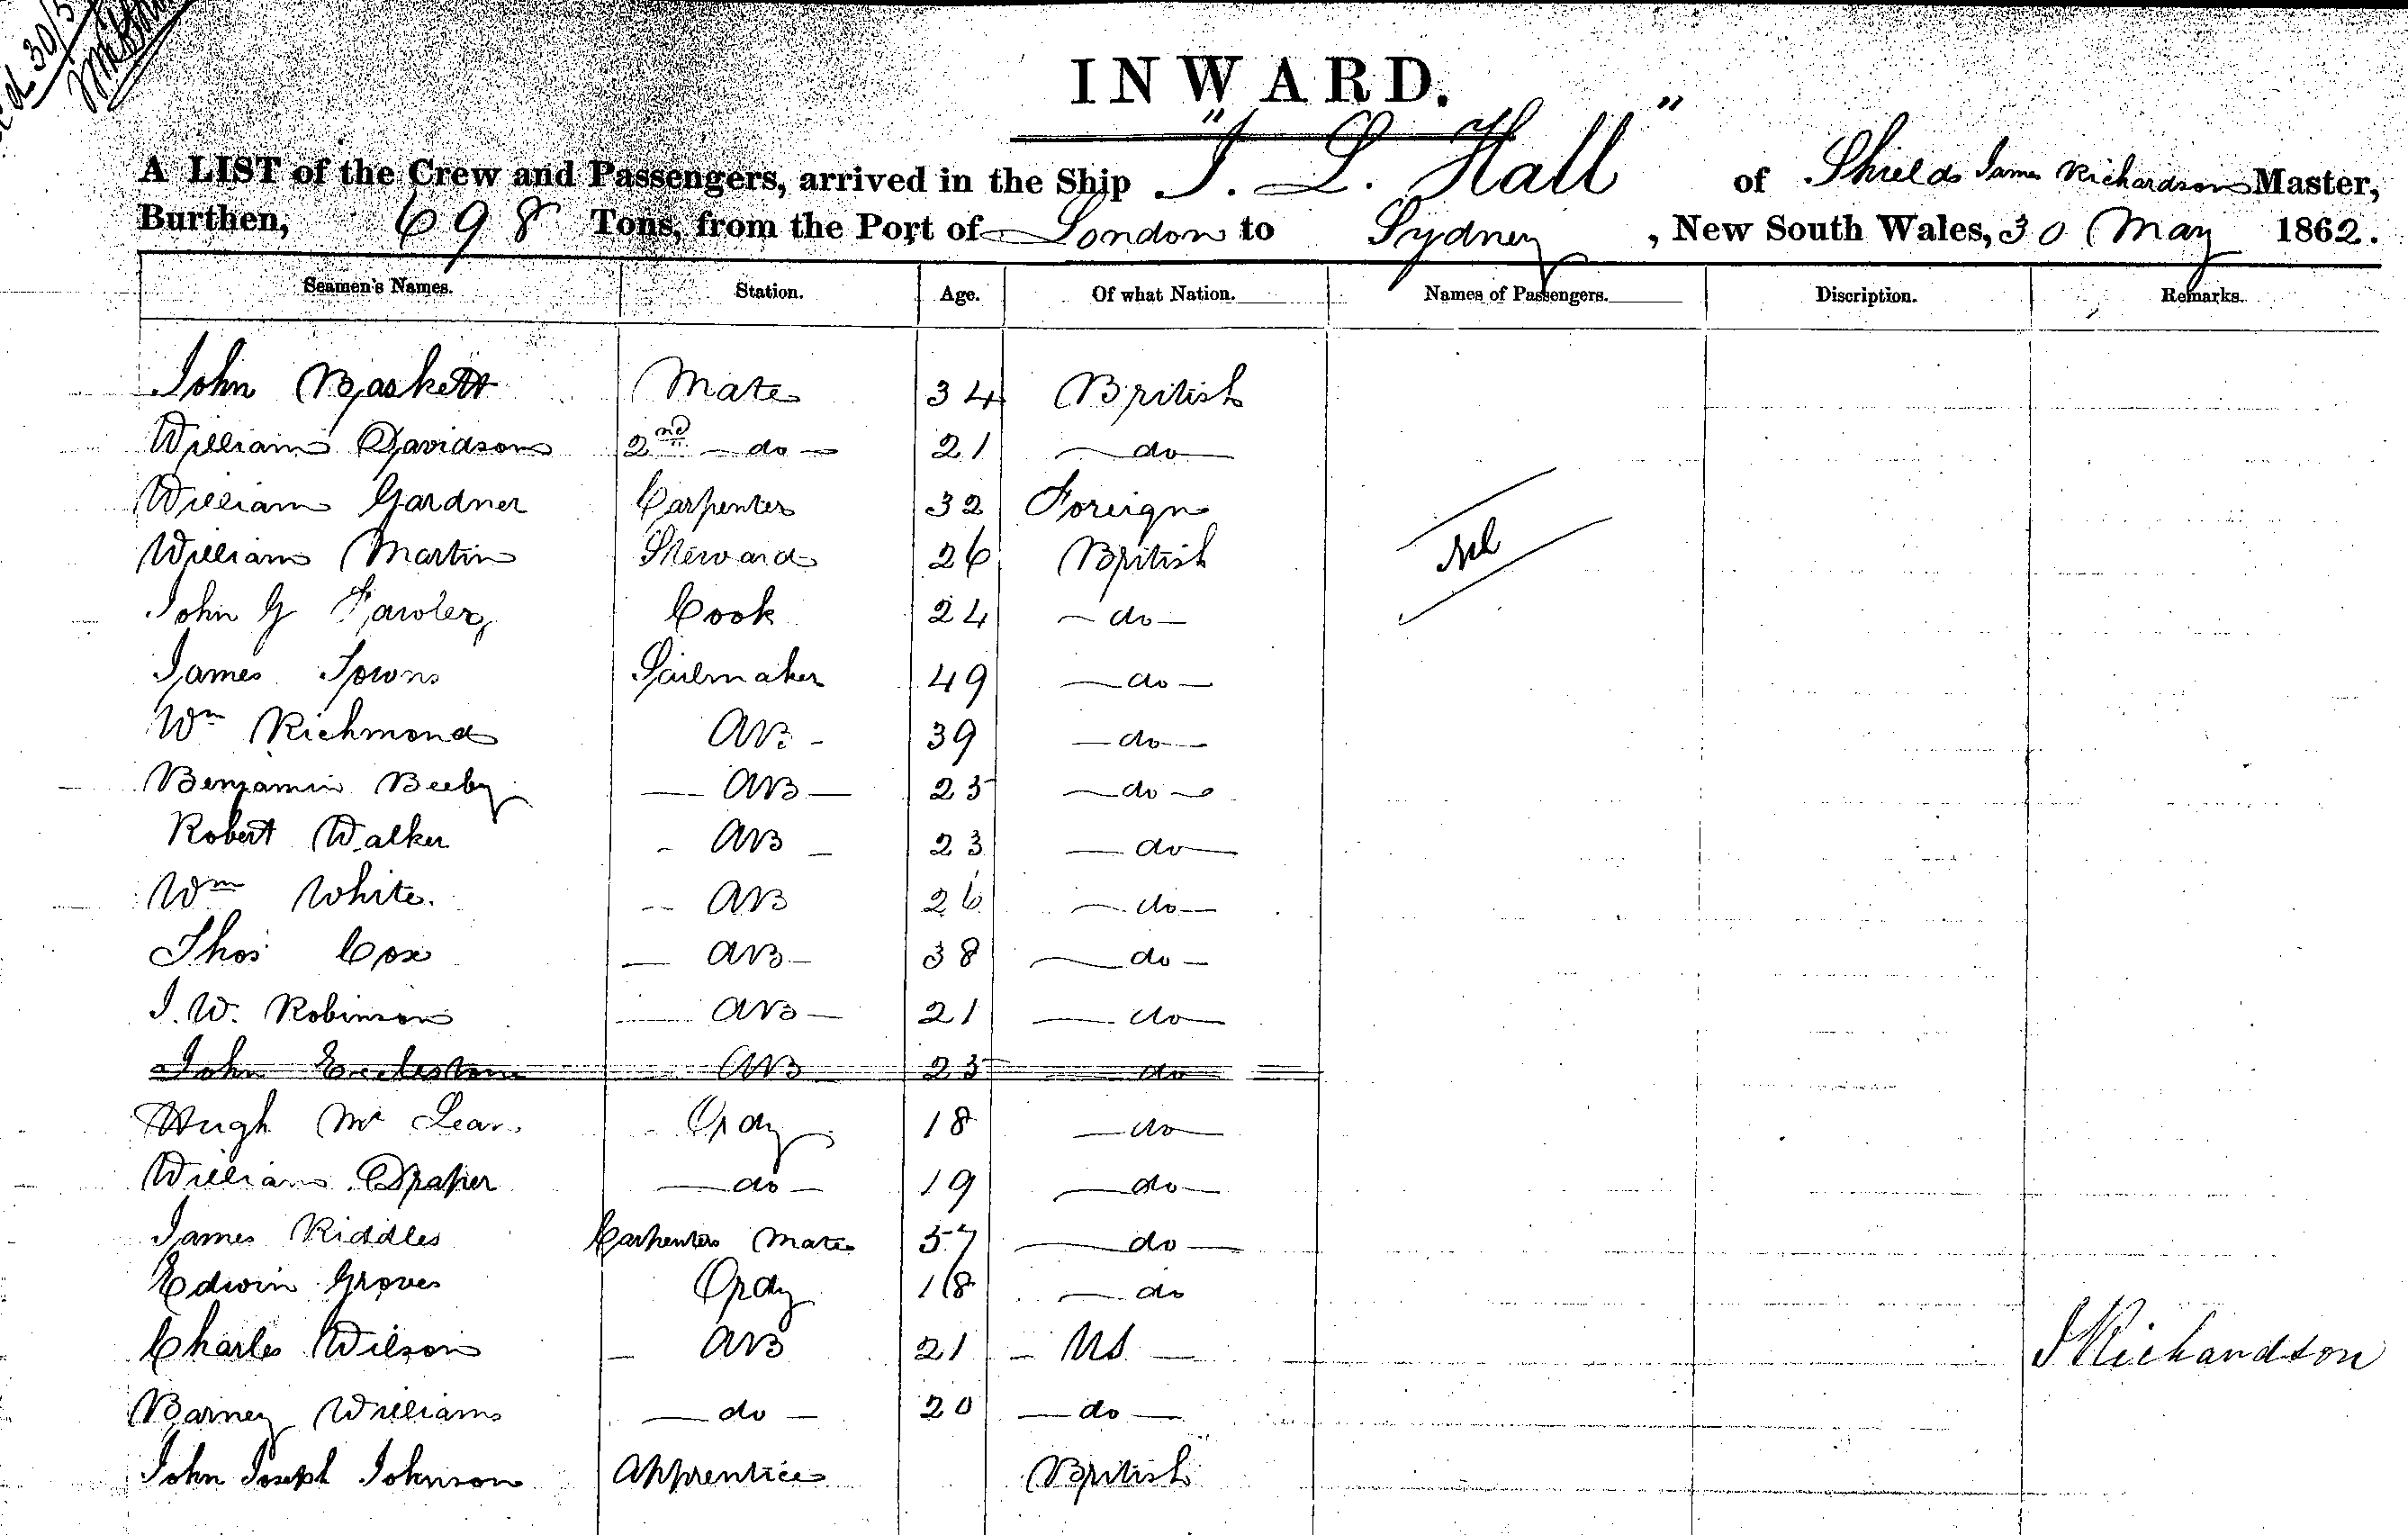 INWARD.
A LIST of the Crew and Passengers, arrived in the Ship "J. L. Hall" of Shields James Richardson Master,
Burthen, 698 Tons, from the Port of London to Sydney, New South Wales, 30 May 1862.
Seamen's Names. Station. Age. Of what Nation. Names of Passengers. Discription. Remarks.
John Baskett Mate 34 British
William Davidson 2nd — do — 21 — do —
William Gardner Carpenter 32 Foreign
William Martin Steward 26 British Nil
John G Fawler Cook 24 — do —
James Towns Sailmaker 49 — do —
Wm Richmond AB — 39 — do —
Benjamin Beeby — AB — 25 — do —
Robert Walker - AB - 23 — do —
Wm White. — AB 26 — do —
Thos Cox — AB — 38 — do —
J. W. Robinson — AB — 21 — do —
John Eccleston AB 25 do
Hugh Mc Lean Ordy 18 — do —
William Draper — do — 19 — do —
James Riddles Carpenters Mate 57 — do —
Edwin Groves Ordy 18 — do
Charles Wilson — AB 21 — US — J Richardson
Barney Williams — do — 20 — do —
John Joseph Johnson Apprentice British